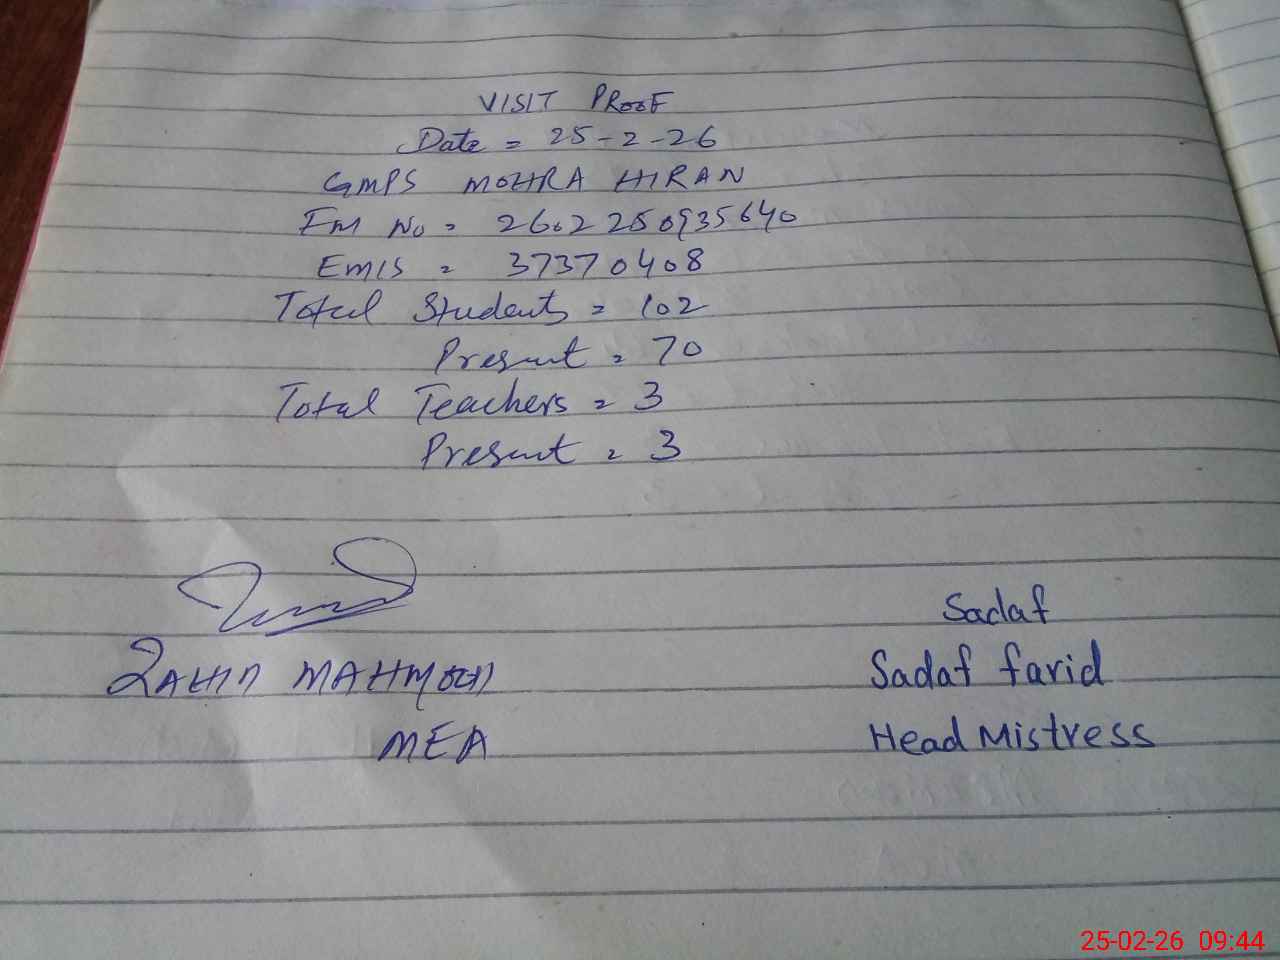 VISIT PROOF
Date = 25-2-26
GMPS MOHRA HIRAN
FM No = 2602250935640
EMIS = 37370408
Total Students = 102
Present = 70
Total Teachers = 3
Present = 3
Sadaf
ZAHID MAHMOOD
Sadaf farid
MEA
Head Mistress
25-02-26 09:44